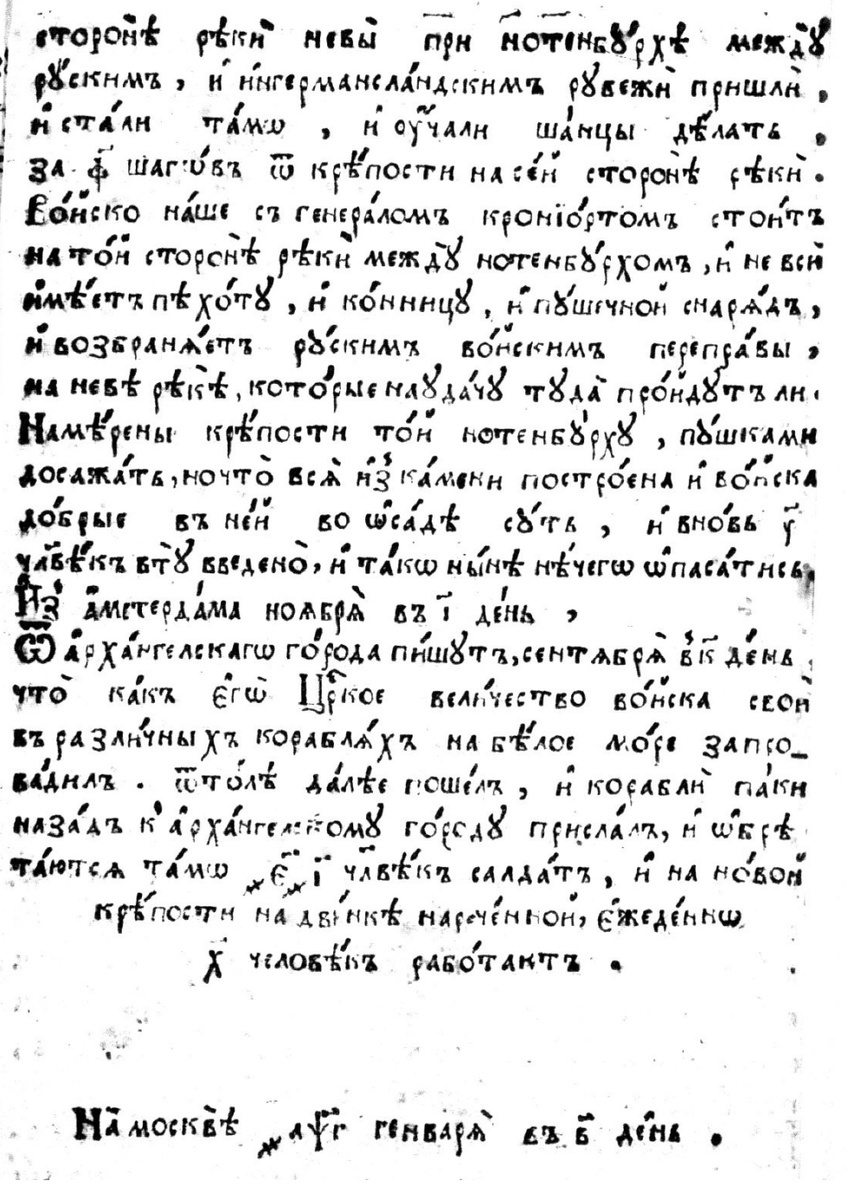 сторонѣ̀ рѣкѝ невы̀ прѝ нотенбꙋ́рхѣ междꙋ̀
рꙋ́скимъ, и҆ и҆нгерманслѧ́ндскимъ рꙋбежѝ пришлѝ,
и҆ ста́ли та́мѡ, и҆ ᲂу҆ча́ли ша́нцы дѣ́лать,
за ф҃ шагѡ́въ ѿ крѣ́пости на се́й сторонѣ̀ рѣкѝ.
Во́йско на́ше съ генера́ломъ кронїо́ртомъ стои́тъ
на то́й сторонѣ̀ рѣкѝ междꙋ̀ нотенбꙋ́рхомъ, и҆ не всѝ
и҆мѣ́етъ пѣхо́тꙋ, и҆ ко́нницꙋ, и҆ пꙋ́шечной снарѧ́дъ,
и҆ возбранѧ́етъ рꙋ́скимъ во́йскимъ перепра́вы,
на невѣ̀ рѣкѣ̀, кото́рые наꙋда́чꙋ тꙋда̀ про́йдꙋтъ ли.
Намѣ́рены крѣ́пости то́й нотенбꙋ́рхꙋ, пꙋ́шками
досажа́ть, но что̀ всѧ̀ и҆з̾ ка́мени постро́ена и҆ во́йска
до́брые въ не́й во ѡ҆са́дѣ сꙋ́ть, и҆ вновь ꙋ҃
чл҃вѣ́къ втꙋ̀ введено̀, и҆ та́кѡ ны́нѣ нѣ́чегѡ ѡ҆паса́тисѧ.
И҆з̾ а҆мстерда́ма ноѧбрѧ̀ въ і҃ де́нь,
Ѿ а҆рха́нгелскагѡ го́рода пи́шꙋтъ, сентѧбрѧ̀ в̾ к҃ де́нь,
что̀ ка́къ є҆гѡ̀ Цр҃кое вели́чество во́йска своѝ
въ разли́чныхъ кораблѧ́хъ на бѣ́лое мо́ре запро_
ва́дилъ. ѿто́лѣ да́лѣе поше́лъ, и҆ кораблѝ па́ки
наза́дъ к̾ а҆рха́нгелскомꙋ го́родꙋ присла́лъ, и҆ ѡ҆брѣ
та́ютсѧ та́мѡ ҂є҃ ҂і҃ чл҃вѣ́къ салда́тъ, и҆ на но́вой
крѣ́пости на дви́нкѣ нарече́нной, є҆жеде́ннѡ
х҃ человѣ́къ рабо́таютъ.
На̀ москвѣ̀ ҂аѱ҃г генварѧ̀ въ в҃ де́нь.